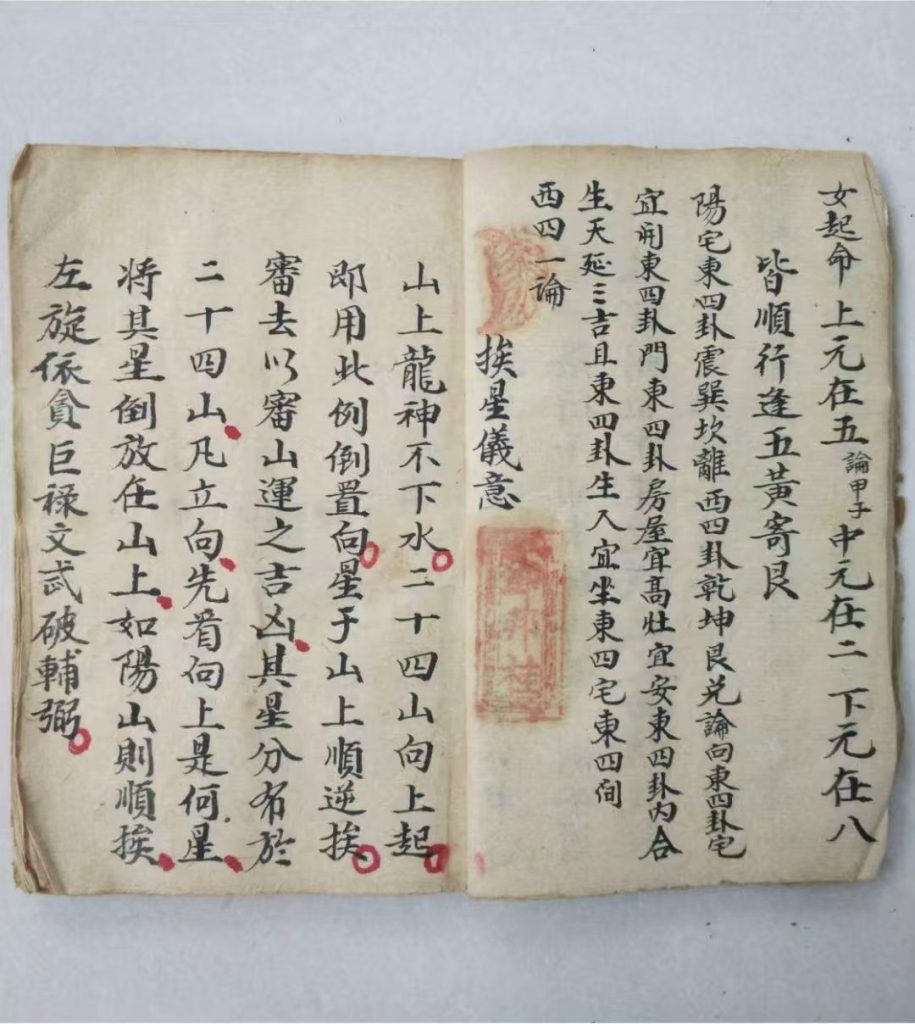 女起命上元在五論甲子中元在二下元在八
皆順行逢五黃寄艮
陽宅東四卦震巽坎離西四卦乾坤艮兑論向東四卦宅
宜開東四卦門東四卦房屋宜高灶宜安東四卦内合
生天延三吉且東四卦生人宜坐東四宅東四間
西四一論
挨星儀意
山上龍神不下水二十四山向上起
即用此例倒置向星于山上順逆挨
審去以審山運之吉凶其星分布於
二十四山凡立向先看向上是何星
将其星倒放在山上如陽山則順挨
左旋依貪巨禄文武破輔弼